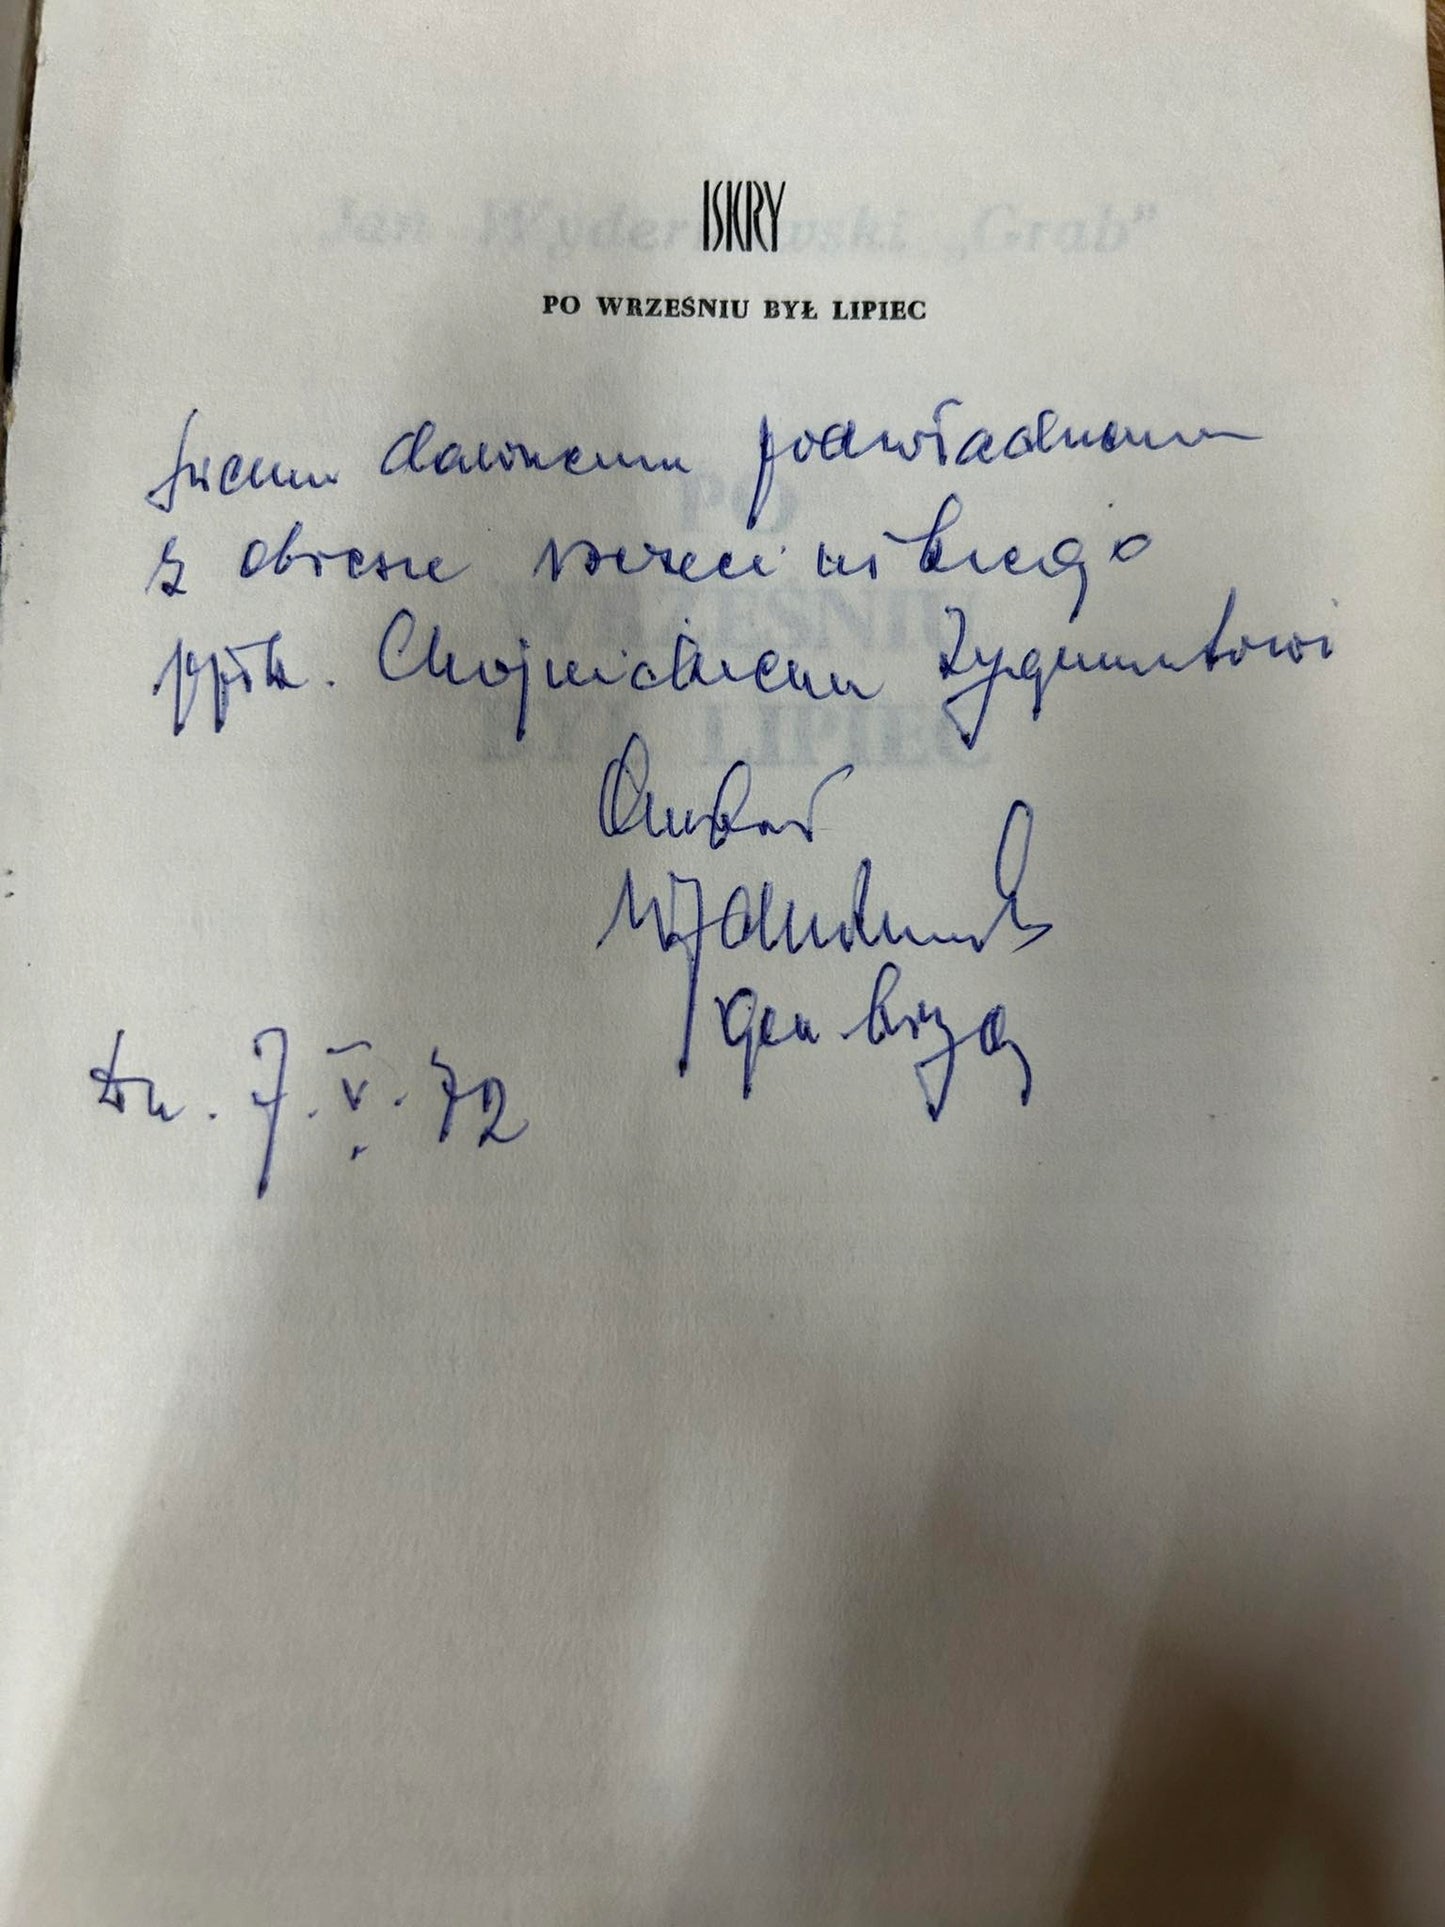 ISKRY
PO WRZEŚNIU BYŁ LIPIEC
Swemu dawnemu podwładnemu
z okresu
ppłk. Chojnickiemu Zygmuntowi
Autor
gen. bryg
Dn. 7. V. 72
Jan Wyderkowski „Grab”
PO
WRZEŚNIU
BYŁ LIPIEC